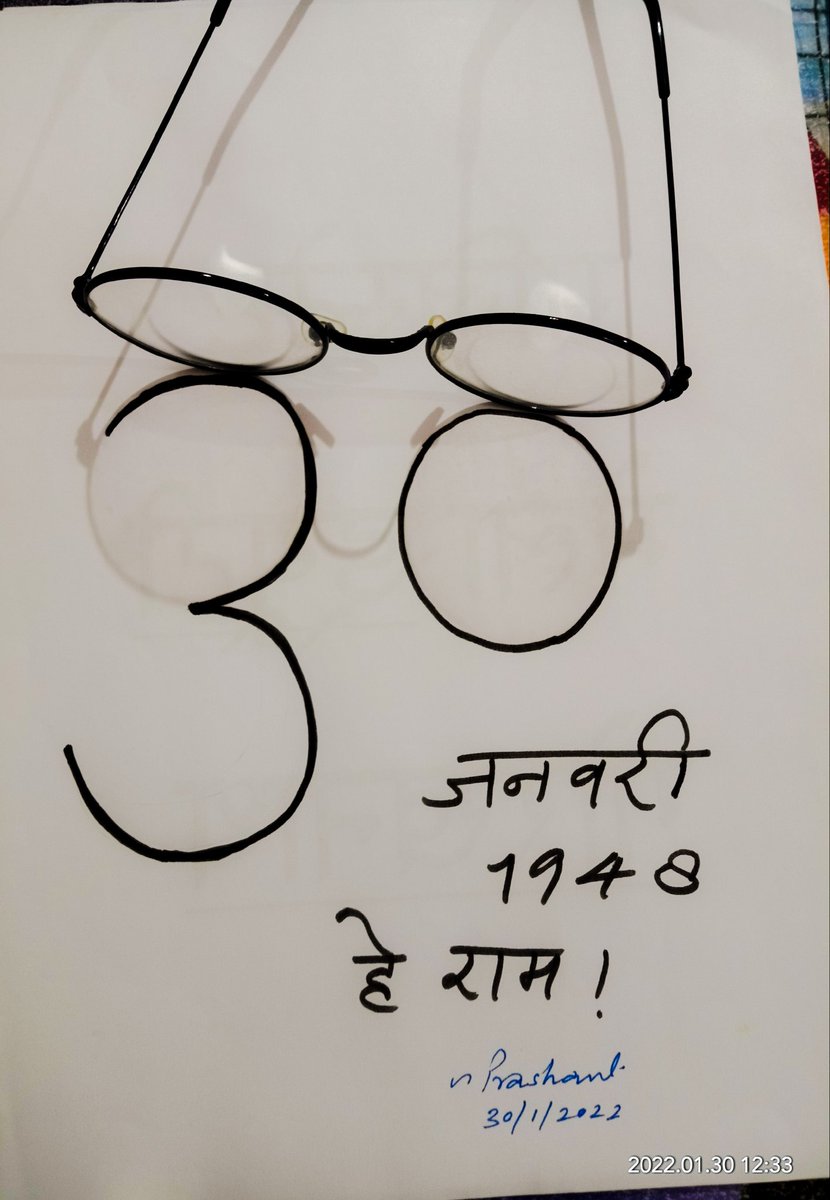 30
जनवरी
1948
हे राम !
Prashant
30/1/2022
2022.01.30 12:33